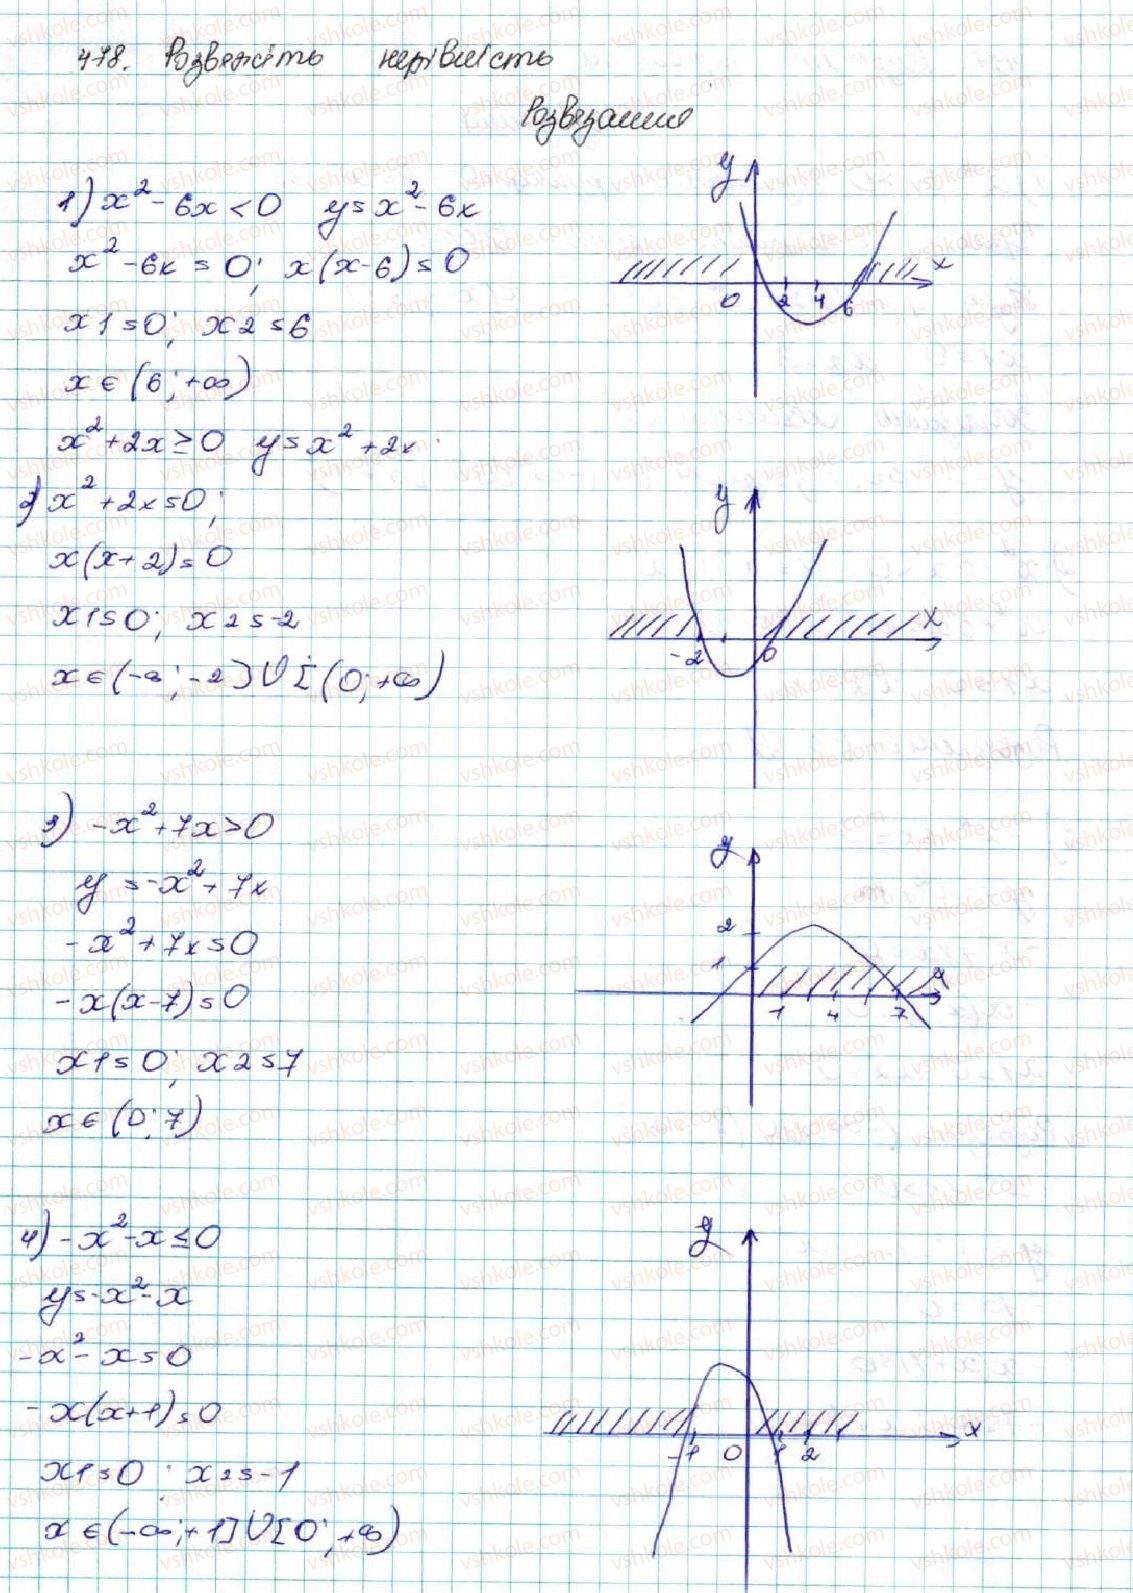 478. Розвяжіть нерівність
Розвязання
1) x² - 6x < 0 y = x² - 6x
x² - 6x = 0; x(x-6) = 0
x1 = 0; x2 = 6
x ∈ (6; +∞)
x² + 2x ≥ 0 y = x² + 2x
2) x² + 2x = 0;
x(x+2) = 0
x1 = 0; x2 = -2
x ∈ (-∞; -2] ∪ [(0; +∞)
3) -x² + 7x > 0
y = -x² + 7x
-x² + 7x = 0
-x(x-7) = 0
x1 = 0; x2 = 7
x ∈ (0; 7)
4) -x² - x ≤ 0
y = -x² - x
-x² - x = 0
-x(x+1) = 0
x1 = 0; x2 = -1
x ∈ (-∞; +1] ∪ [0; +∞)
y
x
0 2 4 6
y
x
-2 0
y
2
1
1 4 7
y
x
-1 0 1 2